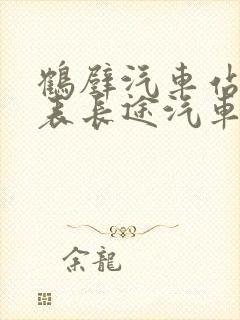 鶴壁汽車佔
表長途汽車
余龍